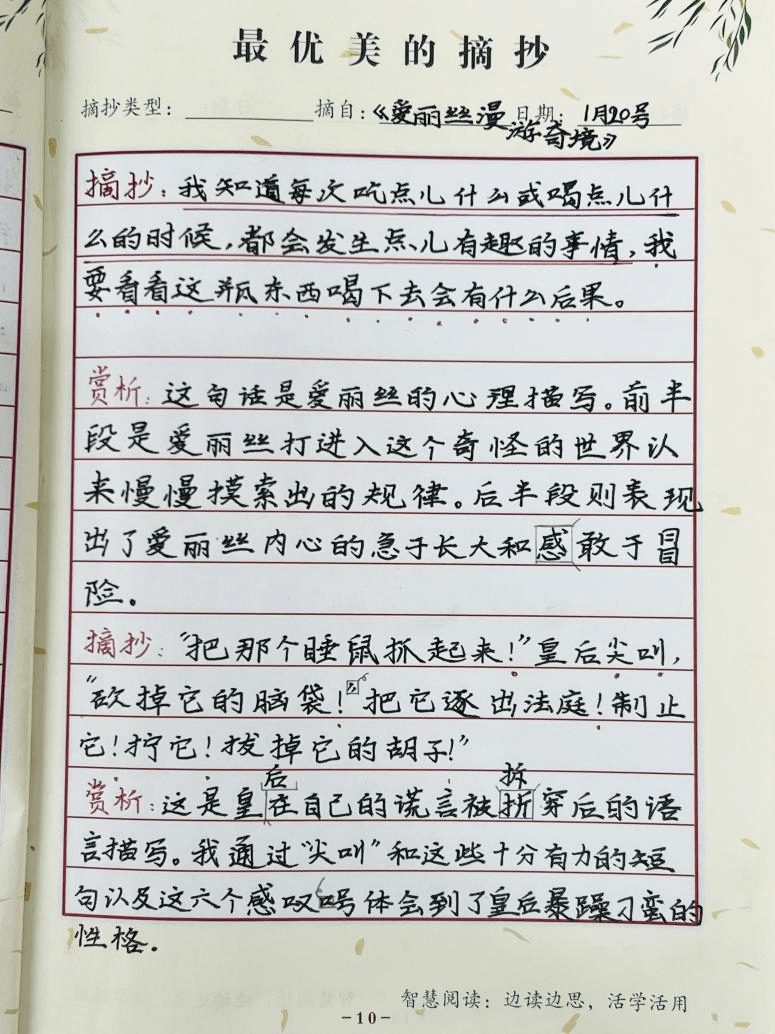 最优美的摘抄
摘抄类型： 摘自：《爱丽丝漫游奇境》 日期：1月20号
摘抄：我知道每次吃点儿什么或喝点儿什
么的时候，都会发生点儿有趣的事情，我
要看看这瓶东西喝下去会有什么后果。
赏析：这句话是爱丽丝的心理描写。前半
段是爱丽丝打进入这个奇怪的世界认
来慢慢摸索出的规律。后半段则表现
出了爱丽丝内心的急于长大和感敢于冒
险。
摘抄：“把那个睡鼠抓起来！”皇后尖叫，
“砍掉它的脑袋！把它逐出法庭！制止
它！拧它！拔掉它的胡子！”
后 拆
赏析：这是皇在自己的谎言被折穿后的语
言描写。我通过“尖叫”和这些十分有力的短
句以及这六个感叹号体会到了皇后暴躁刁蛮的
性格.
智慧阅读：边读边思，活学活用
-10-